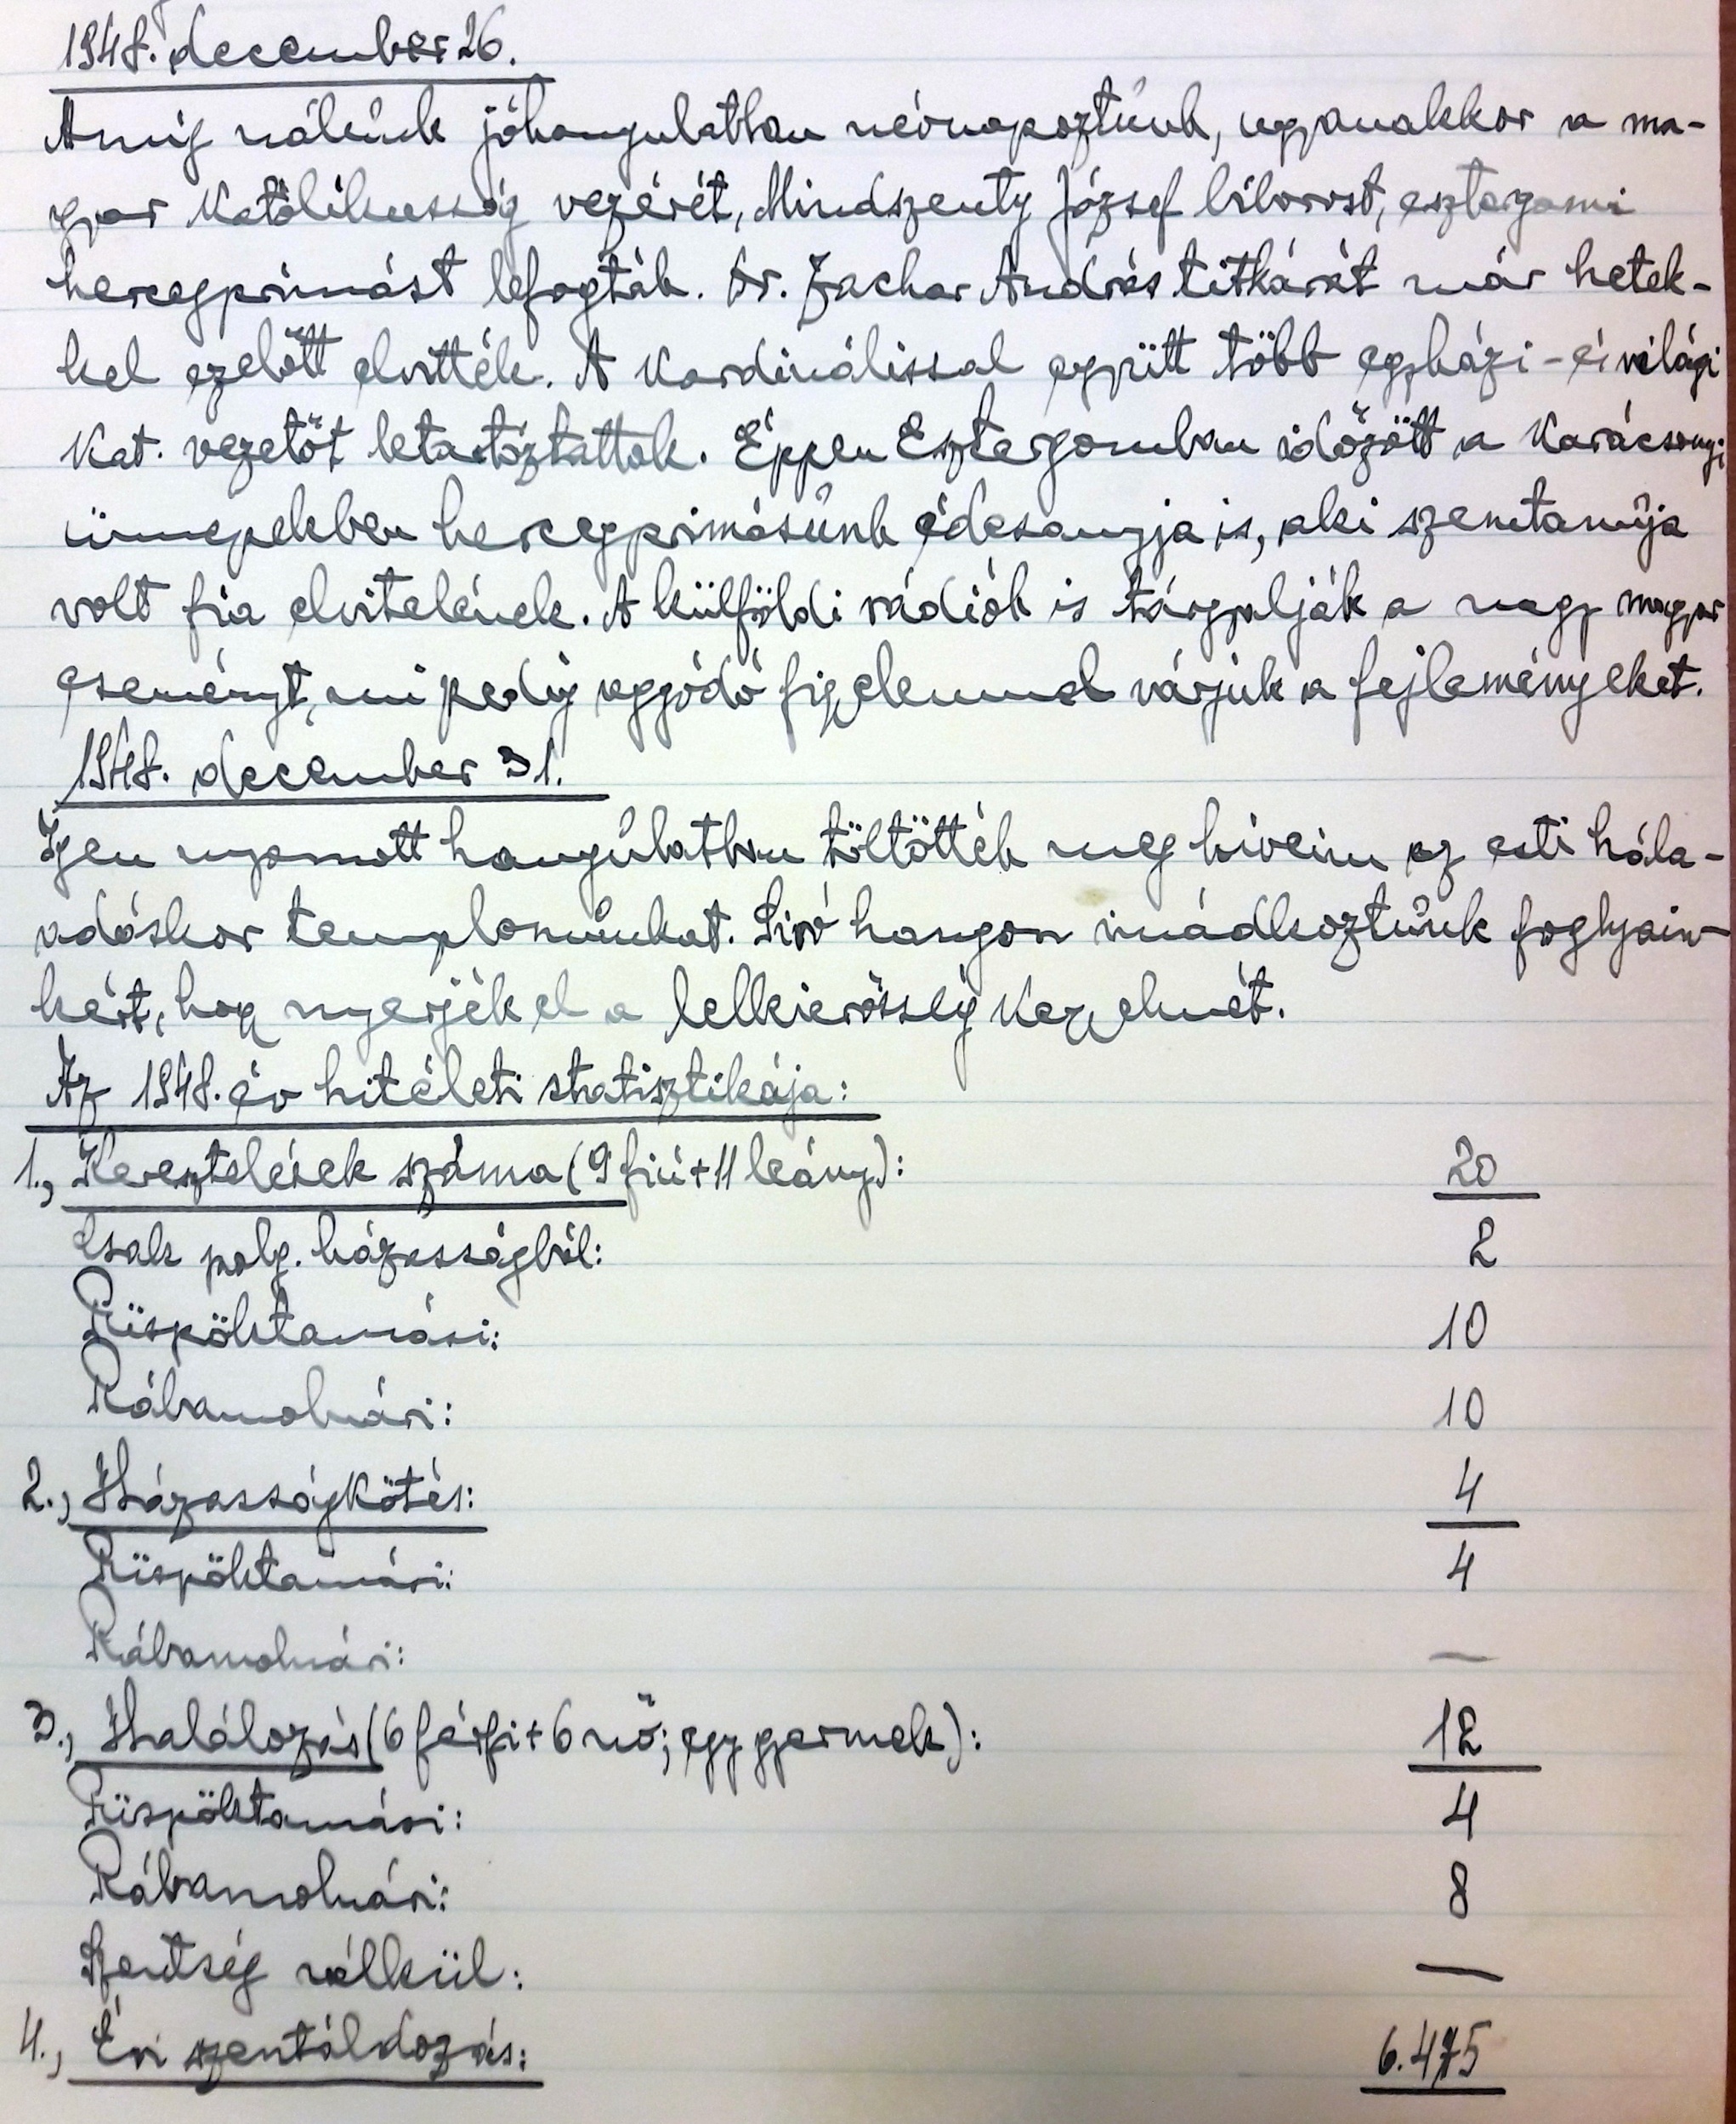 1948. december 26.
Amig nálunk jóhangulatban névnapoztunk, ugyanakkor a ma-
gyar katólikusság vezérét, Mindszenty József bíborost, esztergomi
hercegprimást lefogták. Dr. Zachar András titkárát már hetek-
kel ezelőtt elvitték. A kardinálissal együtt több egyházi - és világi
kat. vezetőt letartóztattak. Éppen Esztergomban időzött a karácsonyi
ünnepekben hercegprimásunk édesanyja is, aki szemtanúja
volt fia elvitelének. A külföldi rádiók is tárgyalják a nagy magyar
eseményt, mi pedig aggódó figyelemmel várjuk a fejleményeket.
1948. december 31.
Igen nyomott hangulatban töltötték meg híveim az esti hála-
adáskor templomunkat. Síró hangon imádkoztunk foglyain-
kért, hogy nyerjék el a lelkierősség kegyelmét.
Az 1948. év hitéleti statisztikája:
1., Keresztelések száma (9 fiú + 11 leány): 20
Csak polg. házasságból: 2
Püspöktamási: 10
Rábamolnári: 10
2., Házasságkötés: 4
Püspöktamási: 4
Rábamolnári: —
3., Halálozás (6 férfi + 6 nő; egy gyermek): 12
Püspöktamási: 4
Rábamolnári: 8
Szentség nélkül: —
4., Évi szentáldozás: 6.475